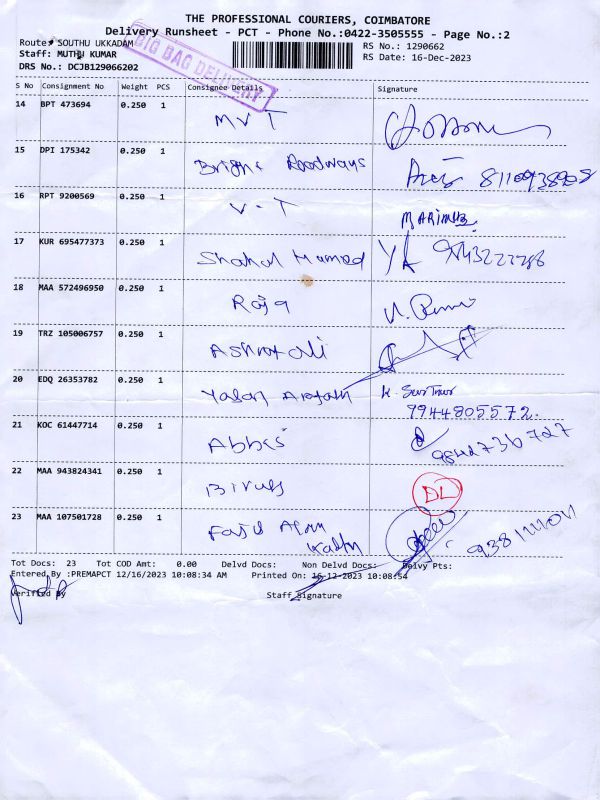 THE PROFESSIONAL COURIERS, COIMBATORE
Delivery Runsheet - PCT - Phone No.:0422-3505555 - Page No.:2
Route: SOUTHU UKKADAM
RS No.: 1290662
Staff: MUTHU KUMAR
RS Date: 16-Dec-2023
DRS No.: DCJB129066202
BIG BAG DELIVERY
S No Consignment No Weight PCS Consignee Details Signature
14 BPT 473694 0.250 1 MVT
15 DPI 175342 0.250 1 Bright Roadways 8110938908
16 RPT 9200569 0.250 1 V.T
17 KUR 695477373 0.250 1 Shahul Hameed
18 MAA 572496950 0.250 1 Raja
19 TRZ 105006757 0.250 1 Ashrof ali
20 EDQ 26353782 0.250 1 Yasar Arafath
9944805572.
21 KOC 61447714 0.250 1 Abbas 9842736727
22 MAA 943824341 0.250 1 DL
23 MAA 107501728 0.250 1
Tot Docs: 23 Tot COD Amt: 0.00 Delvd Docs: Non Delvd Docs: Delvy Pts:
Entered By :PREMAPCT 12/16/2023 10:08:34 AM Printed On: 16-12-2023 10:08:54
Verified By Staff Signature